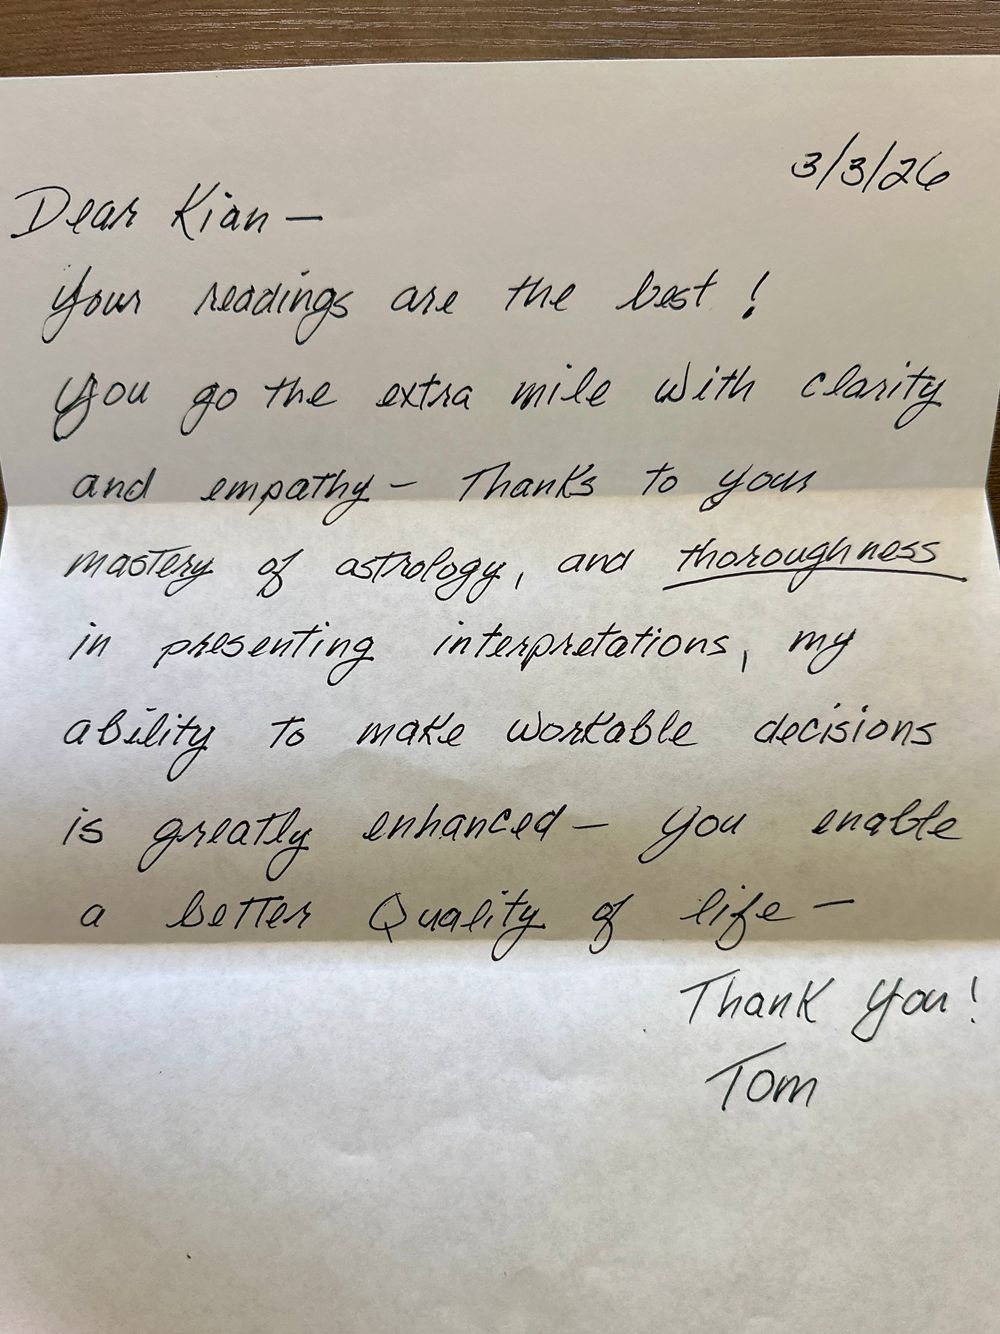 3/3/26
Dear Kian —
Your readings are the best!
You go the extra mile with clarity
and empathy – Thanks to your
mastery of astrology, and thoroughness
in presenting interpretations, my
ability to make workable decisions
is greatly enhanced – you enable
a better Quality of life –
Thank You!
Tom